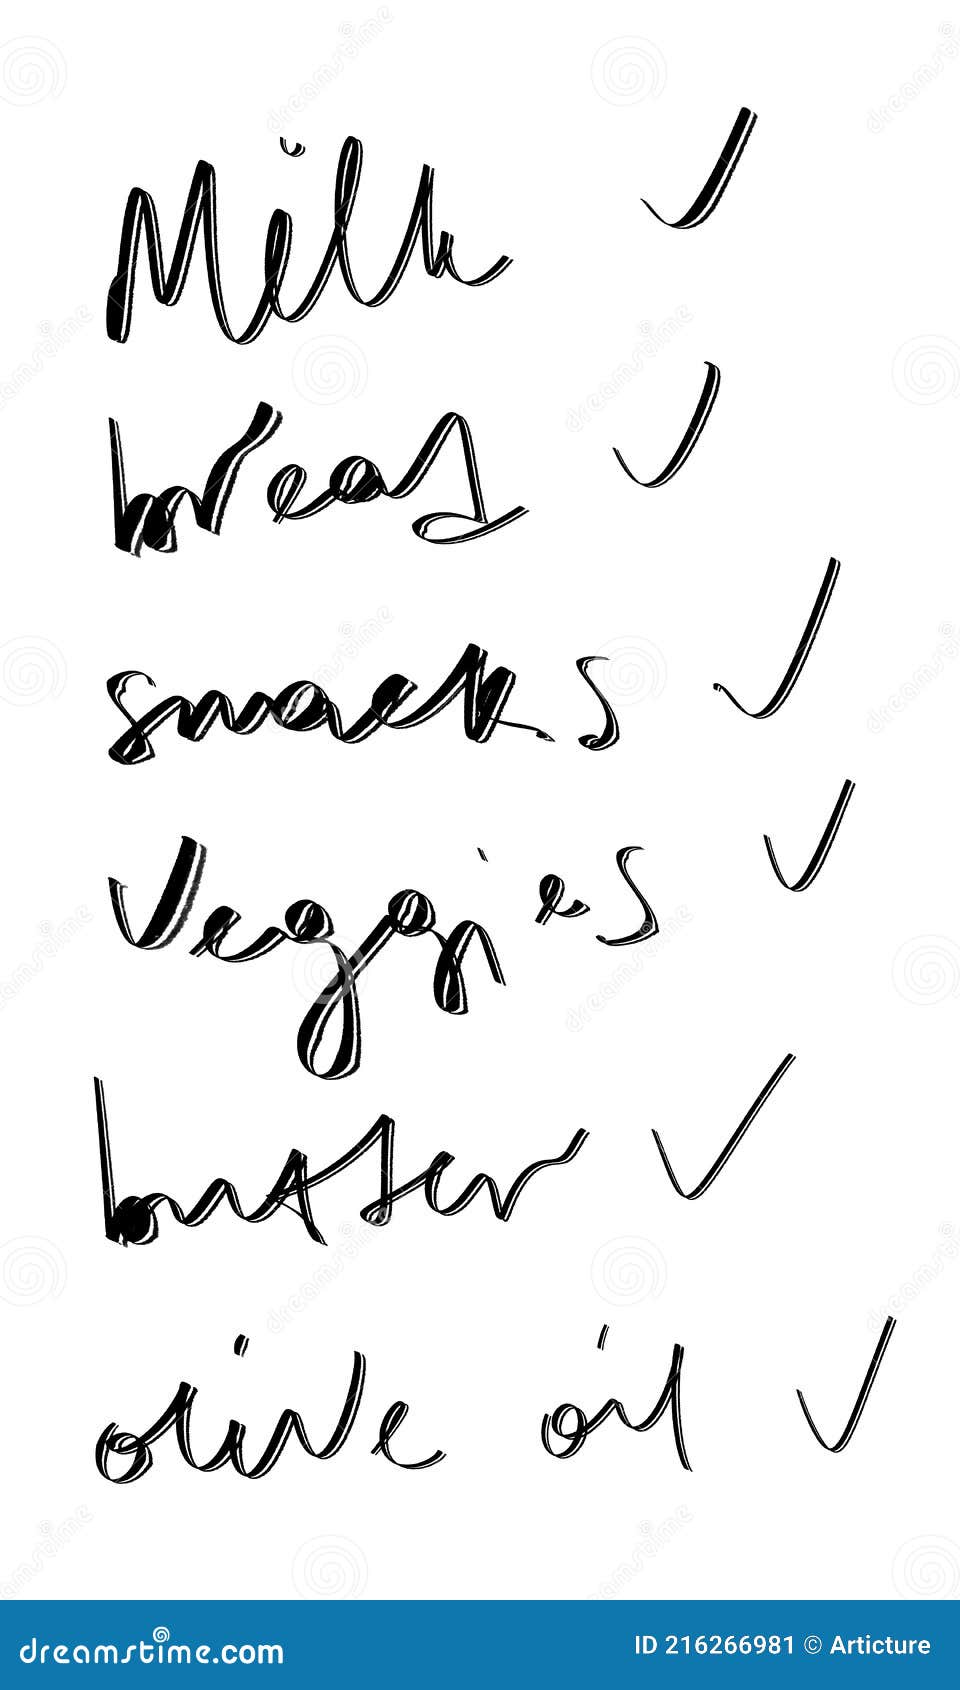 Milk ✓
bread ✓
snacks ✓
veggies ✓
butter ✓
olive oil ✓
dreamstime.com ID 216266981 © Articture